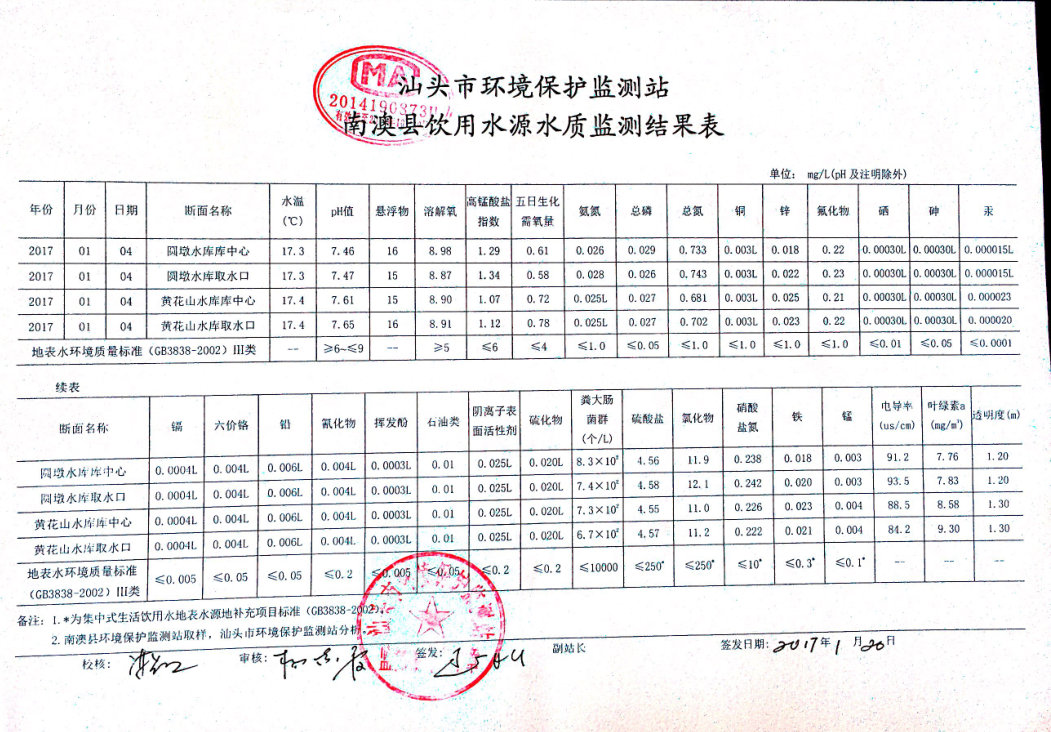 MA
汕头市环境保护监测站
南澳县饮用水源水质监测结果表
单位: mg/L(pH及注明除外)
年份 月份 日期 断面名称 水温(℃) pH值 悬浮物 溶解氧 高锰酸盐指数 五日生化需氧量 氨氮 总磷 总氮 铜 锌 氟化物 硒 砷 汞
2017 01 04 圆墩水库库中心 17.3 7.46 16 8.98 1.29 0.61 0.026 0.029 0.733 0.003L 0.018 0.22 0.00030L 0.00030L 0.000015L
2017 01 04 圆墩水库取水口 17.3 7.47 15 8.87 1.34 0.58 0.028 0.026 0.743 0.003L 0.022 0.23 0.00030L 0.00030L 0.000015L
2017 01 04 黄花山水库库中心 17.4 7.61 15 8.90 1.07 0.72 0.025L 0.027 0.681 0.003L 0.025 0.21 0.00030L 0.00030L 0.000023
2017 01 04 黄花山水库取水口 17.4 7.65 16 8.91 1.12 0.78 0.025L 0.027 0.702 0.003L 0.023 0.22 0.00030L 0.00030L 0.000020
地表水环境质量标准（GB3838-2002）III类 -- ≥6~≤9 -- ≥5 ≤6 ≤4 ≤1.0 ≤0.05 ≤1.0 ≤1.0 ≤1.0 ≤1.0 ≤0.01 ≤0.05 ≤0.0001
续表
断面名称 镉 六价铬 铅 氰化物 挥发酚 石油类 阴离子表面活性剂 硫化物 粪大肠菌群(个/L) 硫酸盐 氯化物 硝酸盐氮 铁 锰 电导率(us/cm) 叶绿素a(mg/m³) 透明度(m)
圆墩水库库中心 0.0004L 0.004L 0.006L 0.004L 0.0003L 0.01 0.025L 0.020L 8.3×10² 4.56 11.9 0.238 0.018 0.003 91.2 7.76 1.20
圆墩水库取水口 0.0004L 0.004L 0.006L 0.004L 0.0003L 0.01 0.025L 0.020L 7.4×10² 4.58 12.1 0.242 0.020 0.003 93.5 7.83 1.20
黄花山水库库中心 0.0004L 0.004L 0.006L 0.004L 0.0003L 0.01 0.025L 0.020L 7.3×10² 4.55 11.0 0.226 0.023 0.004 88.5 8.58 1.30
黄花山水库取水口 0.0004L 0.004L 0.006L 0.004L 0.0003L 0.01 0.025L 0.020L 6.7×10² 4.57 11.2 0.222 0.021 0.004 84.2 9.30 1.30
地表水环境质量标准（GB3838-2002）III类 ≤0.005 ≤0.05 ≤0.05 ≤0.2 ≤0.005 ≤0.05 ≤0.2 ≤0.2 ≤10000 ≤250* ≤250* ≤10* ≤0.3* ≤0.1* -- -- --
备注: 1.*为集中式生活饮用水地表水源地补充项目标准（GB3838-2002）。
2.南澳县环境保护监测站取样，汕头市环境保护监测站分析。
校核: 审核: 签发: 副站长 签发日期: 2017年1月20日